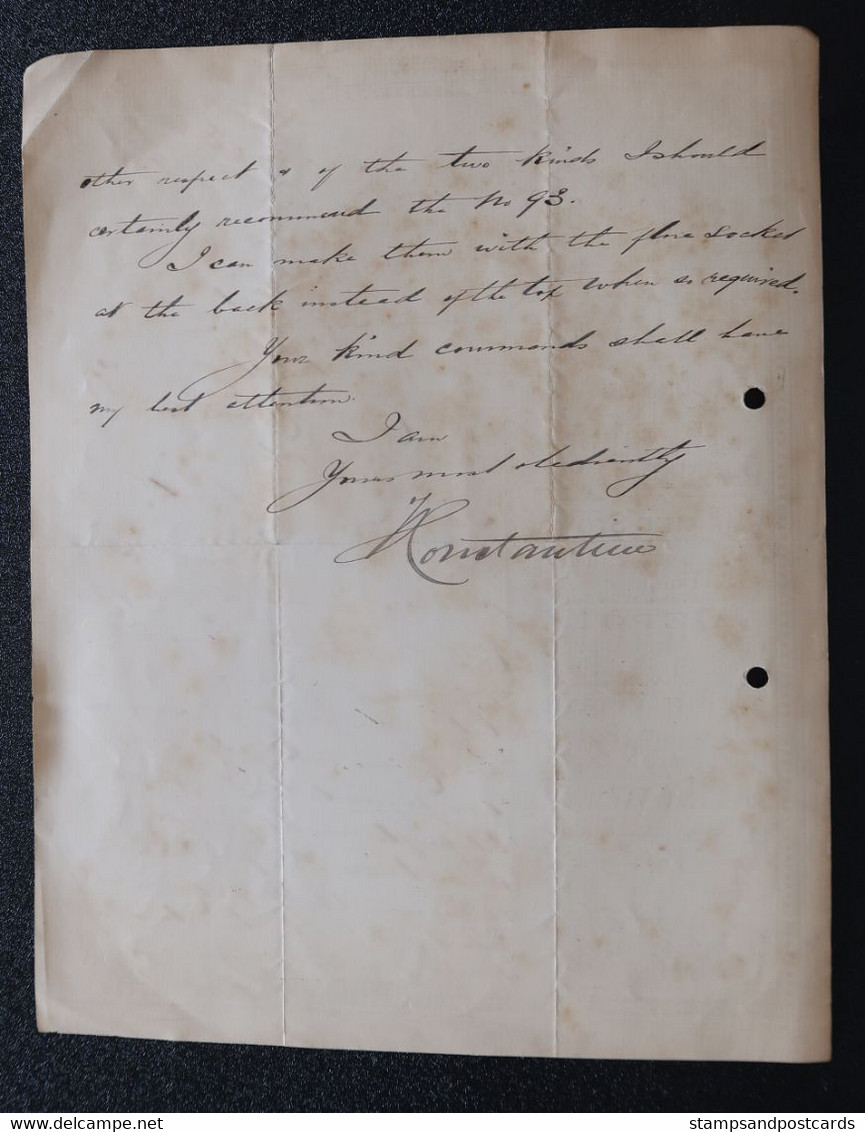 other respect & of the two kinds I should
certainly recommend the No 93.
I can make them with the flue socket
at the back instead of the top when so required.
Your kind commands shall have
my best attention.
I am
Yours most obediently
Constantine
stampsandpostcards